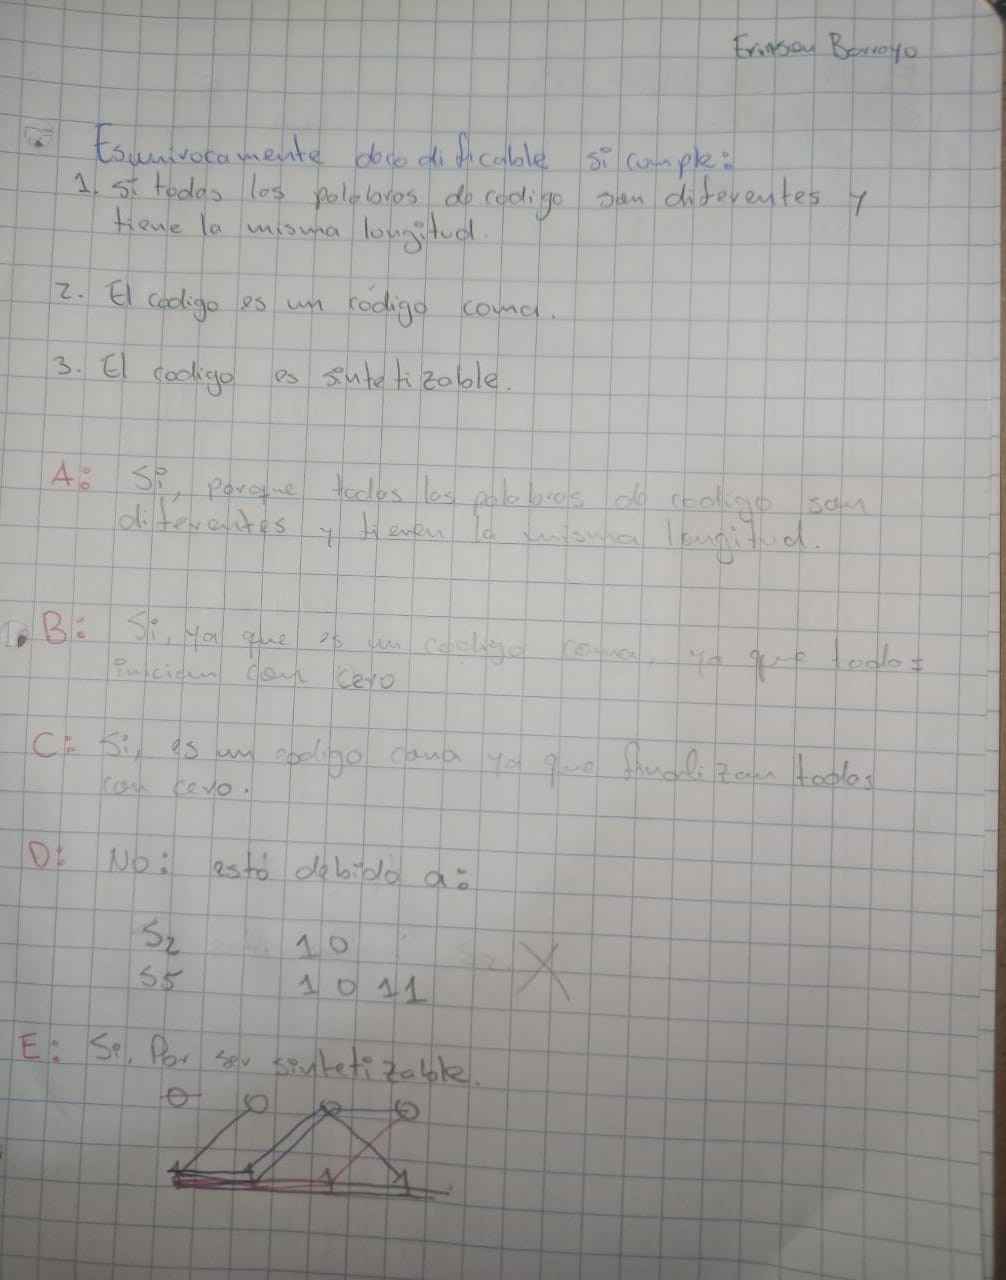 Erinson Barroyo
Esunivocamente docodificable si comple:
1. Si todas los palabras de codigo son diferentes y
tiene la misma longitud.
2. El codigo es un código coma.
3. El codigo es sintetizable.
A: Si, porque todos las palabras de codigo son
diferentes y tienen la misma longitud.
B: Si, ya que es un codigo coma, ya que todos
inician con cero
C: Si, es un codigo coma ya que finalizan todos
con cero.
D: No: está debido a:
S2 10
S5 1011
E: Si, Por ser sintetizable.
0 0 0 0
1 1 1 1